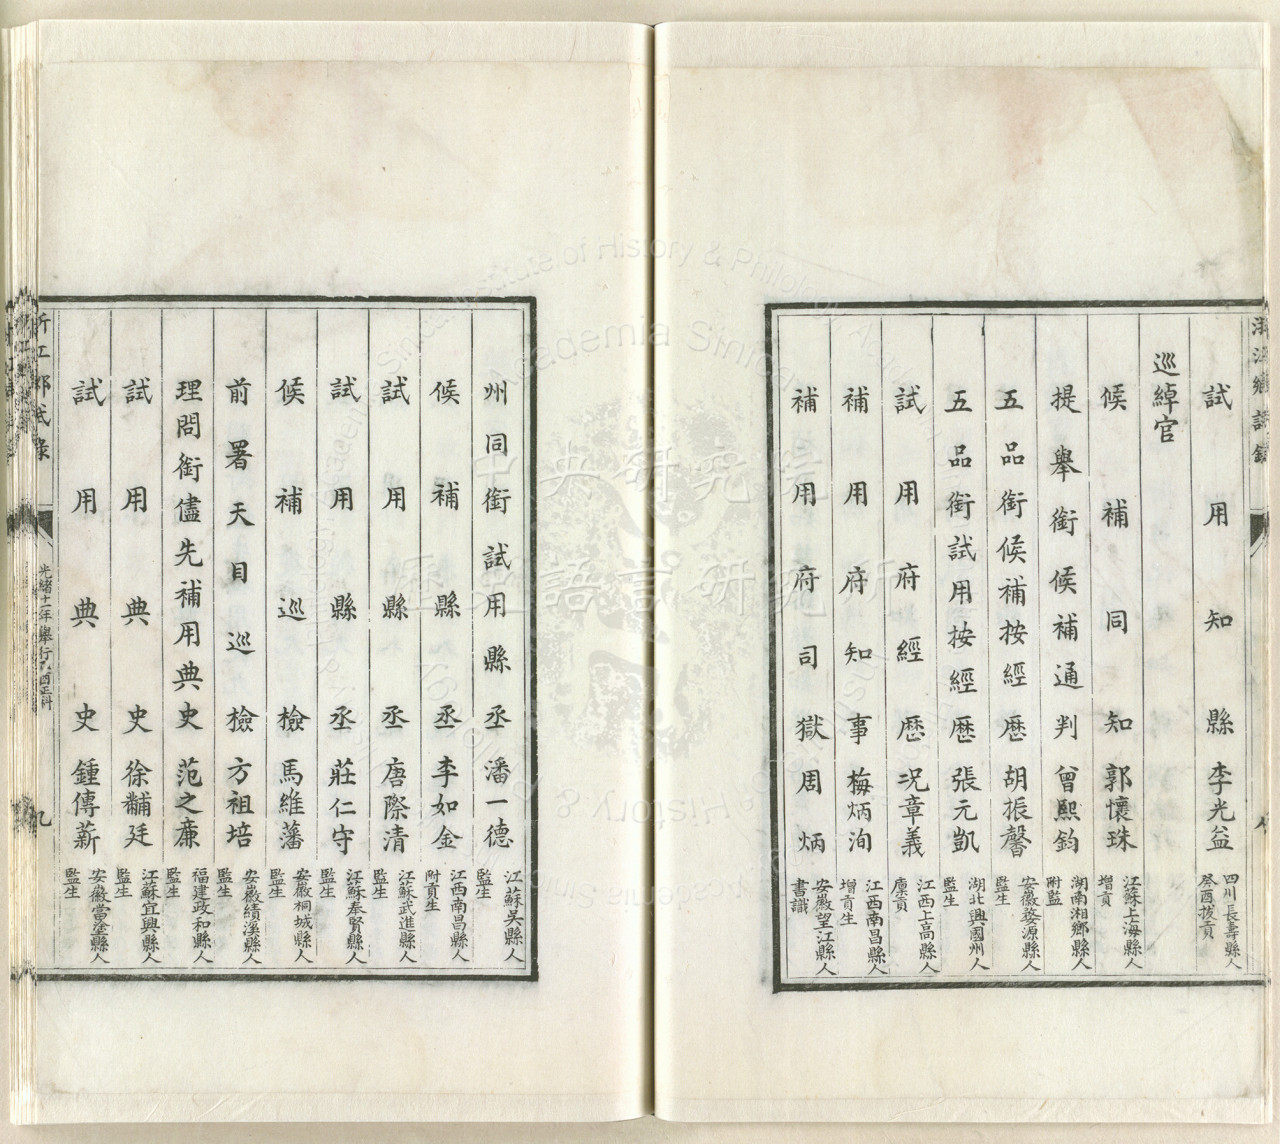 浙江鄉試錄
試用知縣李光益 四川長壽縣人癸酉拔貢
巡綽官
候補同知郭懷珠 江蘇上海縣人增貢
提舉銜候補通判曾熙鈞 湖南湘鄉縣人附監
五品銜候補按經歷胡振馨 安徽婺源縣人監生
五品銜試用按經歷張元凱 湖北興國州人監生
試用府經歷況章義 江西上高縣人廩貢
補用府知事梅炳洵 江西南昌縣人增貢生
補用府司獄周炳 安徽望江縣人書識
州同銜試用縣丞潘一德 江蘇吳縣人監生
候補縣丞李如金 江西南昌縣人附貢生
試用縣丞唐際清 江蘇武進縣人監生
試用縣丞莊仁守 江蘇奉賢縣人監生
候補巡檢馬維藩 安徽桐城縣人監生
前署天目巡檢方祖培 安徽績溪縣人監生
理問銜儘先補用典史范之廉 福建政和縣人監生
試用典史徐黼廷 江蘇宜興縣人監生
試用典史鍾傳薪 安徽當塗縣人監生
浙江鄉試錄
光緒十一年舉行乙酉正科
九
中央研究院
歷史語言研究所
Institute of History & Philology
Academia Sinica